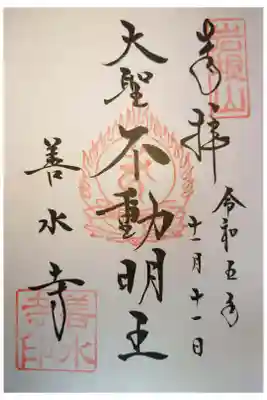 奉拝
令和五年
十一月十一日
大聖不動明王
善水寺
岩根山
善水寺印